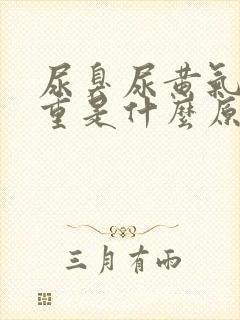 尿臭尿黄氣
重是什麼原
三月有雨